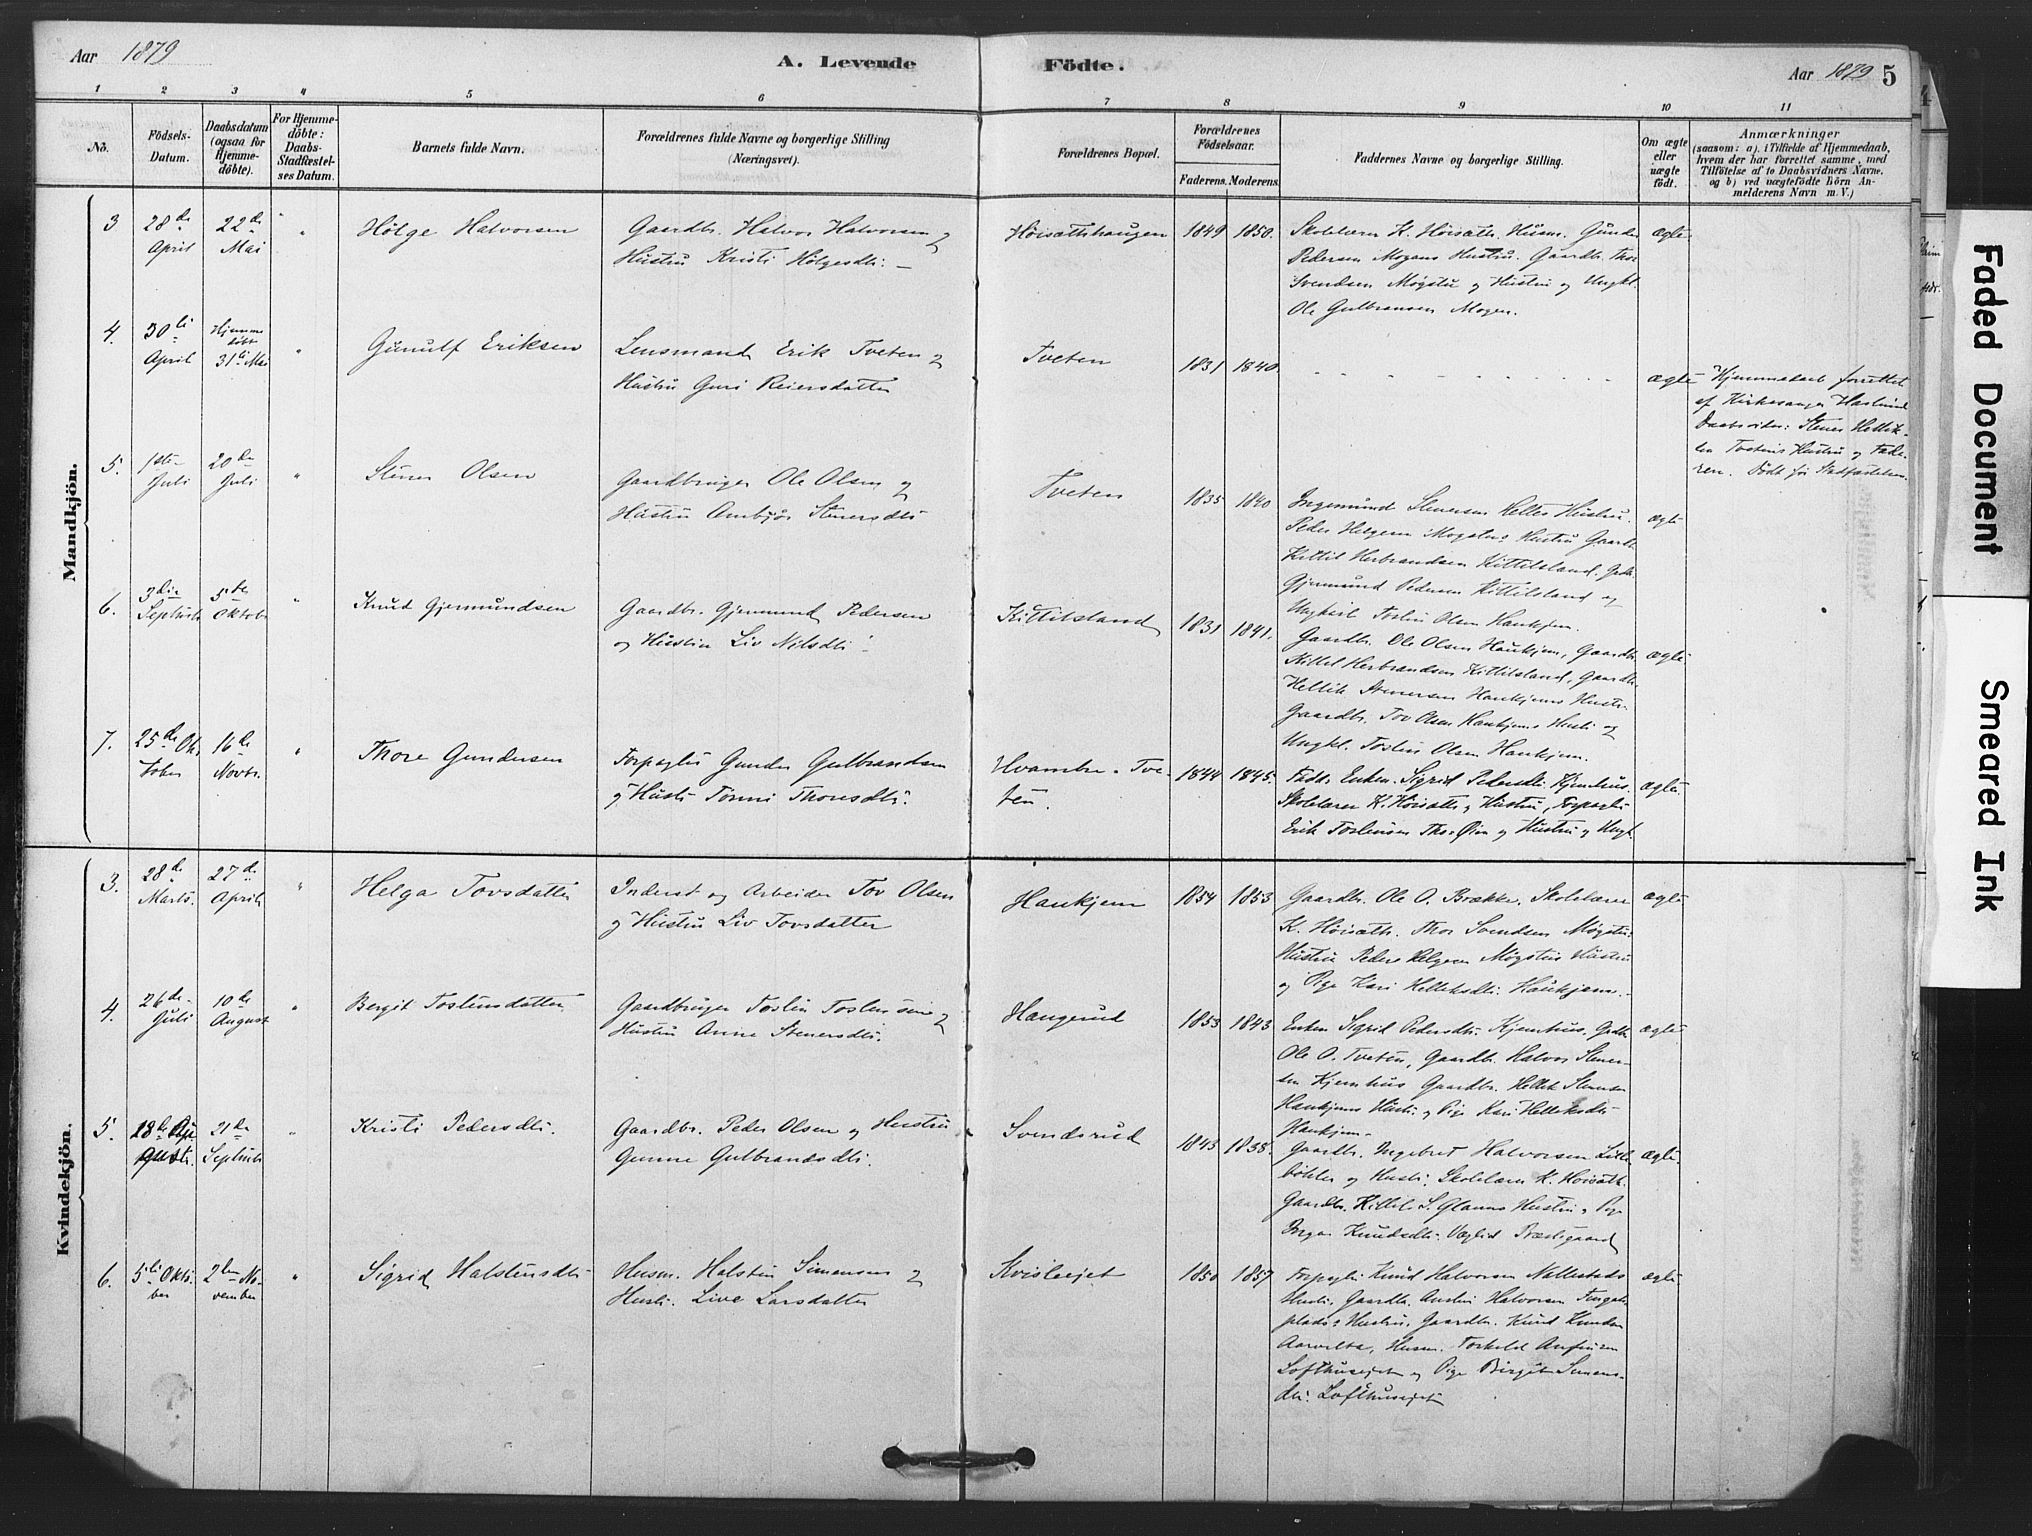 Aar 1879
A. Levende Födte.
Aar 1879 5
1 2 3 4 5 6 7 8 9 10 11
No.
Födsels-Datum.
Daabsdatum (ogsaa for Hjemme-döbte).
For Hjemme-döbte: Daabs-Stadfæstel-ses Datum.
Barnets fulde Navn.
Forældrenes fulde Navne og borgerlige Stilling (Næringsvei).
Forældrenes Bopæl.
Forældrenes Födselsaar.
Faderens. Moderens.
Faddernes Navne og borgerlige Stilling.
Om ægte eller uægte födt.
Anmærkninger
(saasom: a). i Tilfælde af Hjemmedaab, hvem der har forrettet samme, med Tilföielse af to Daabsvidners Navne. og b) ved uægtefödte Börn An-melderens Navn m. V.)
Mandkjön.
3 28de April 22de Mai " Hølge Halvorsen
Gaardbr. Halvor Halvorsen og
Hustru Kristi Hølgesdtr. –
Høisætshaugen 1849 1850.
Skolelærer K. Høisæth, Husm. Gunder
Pedersen Mogens Hustru. Gaardbr. Thor
Svendsen Møgstu og Hustru og Ungkl.
Ole Gulbransen Mogen.
ægte
4. 30te April Hjemme døbt 31te Mai " Gunulf Eriksen
Lensmand Erik Tveten og
Hustru Guri Reiersdatter
Tveten 1831 1840.
ægte
Hjemmedaab forrettet
af Kirkesanger Haslund
Daabsvidner: Stener Hellik-
sen Tvetens Hustru og Fade-
ren. Døde før Stadfæstelsen.
5. 1ste Juli 20de Juli " Stener Olsen
Gaardbruger Ole Olsen og
Hustru Ambjør Stenersdtr
Tveten 1835 1840
Ingemund Stenersen Heltes Hustru.
Peder Helgesen Mogstus Hustru Gaardbr.
Kittil Herbrandsen Kittilsland, Grdbr.
Gjermund Pedersen Kittilsland og
Ungkarl Tostin Olsen Haukjem.
ægte
6. 3die Septbr 5te Oktobr " Knud Gjermundsen
Gaardbr. Gjermund Pedersen
og Hustru Liv Nilsdtr.
Kittilsland 1831 1841.
Gaardbr. Ole Olsen Haukjem, Gaardbr.
Kittel Herbrandsen Kittilsland, Gaardbr.
Hellik Stenersen Haukjems Hustru
Gaardbr. Tov Olsen Haukjems Hustr. og
Ungkl. Tostin Olsen Haukjem.
ægte
7. 25de Oktober 16de Novbr. " Thore Gundersen
Forpagter Gunder Gulbrandsen
og Hustr. Tonni Thoresdtr.
Hvambr. Tve-
ten. 1844 1845.
Fadd. Enken Sigrid Pedersdtr. Kjemhus.
Skolelærer K. Høisæth og Hustru, Forpagter
Erik Tostensen Thorsøen og Hustru og Ungk.
ægte
Kvindekjön.
3. 28de Marts. 27de April " Helga Tovsdatter
Inderst og Arbeider Tov Olsen
og Hustru Liv Tovsdatter
Haukjem 1854 1853
Gaardbr. Ole O. Brække. Skolelærer
K. Høisæth. Thor Svendsen Møgstus
Hustru Peder Helgesen Møgstus Hustru
og Pige Kari Helleksdtr. Haukjem.
ægte
4. 26de Juli 10de August " Bergit Tostensdatter
Gaardbruger Tostin Tostensen og
Hustru Anne Stenersdtr.
Haugerud 1853 1843
Enken Sigrid Pedersdtr. Kjemhus, Grdbr.
Ole O. Tveten, Gaardbr. Halvor Stener-
sen Kjemhus Gaardbr. Hellek Stenersen
Haukjems Hustr. og Pige Kari Helleksdtr
Haukjem.
ægte
5. 18de August. 21de Septbr " Kristi Pedersdtr.
Gaardbr. Peder Olsen og Hustru
Gunne Gulbrandsdtr.
Svendsrud 1843 1838.
Gaardbr. Ingebret Halvorsen Lille-
bøhler og Hustr. Skolelærer K. Høisæth.
Gaardbr. Kittil S. Glaims Hustru, Pige
Inga Knudsdtr. Væglid Præstegaard
ægte.
6. 5te Oktober 2den November " Sigrid Halstensdtr
Husm. Halstin Simensen og
Hustr. Live Larsdatter
Kvisleiet 1850 1857
Forpagter Knud Halvorsen Nallestads
Hustr. Gaardbr. Austin Halvorsen
plads: Hustru, Gaardbr. Knud Knudsen
Aasvelta, Husm. Torkeld Anfinsen
Lofthuseiet og Pige Birgit Simens-
dtr. Lofthuseiet
ægte
Faded Document
Smeared Ink